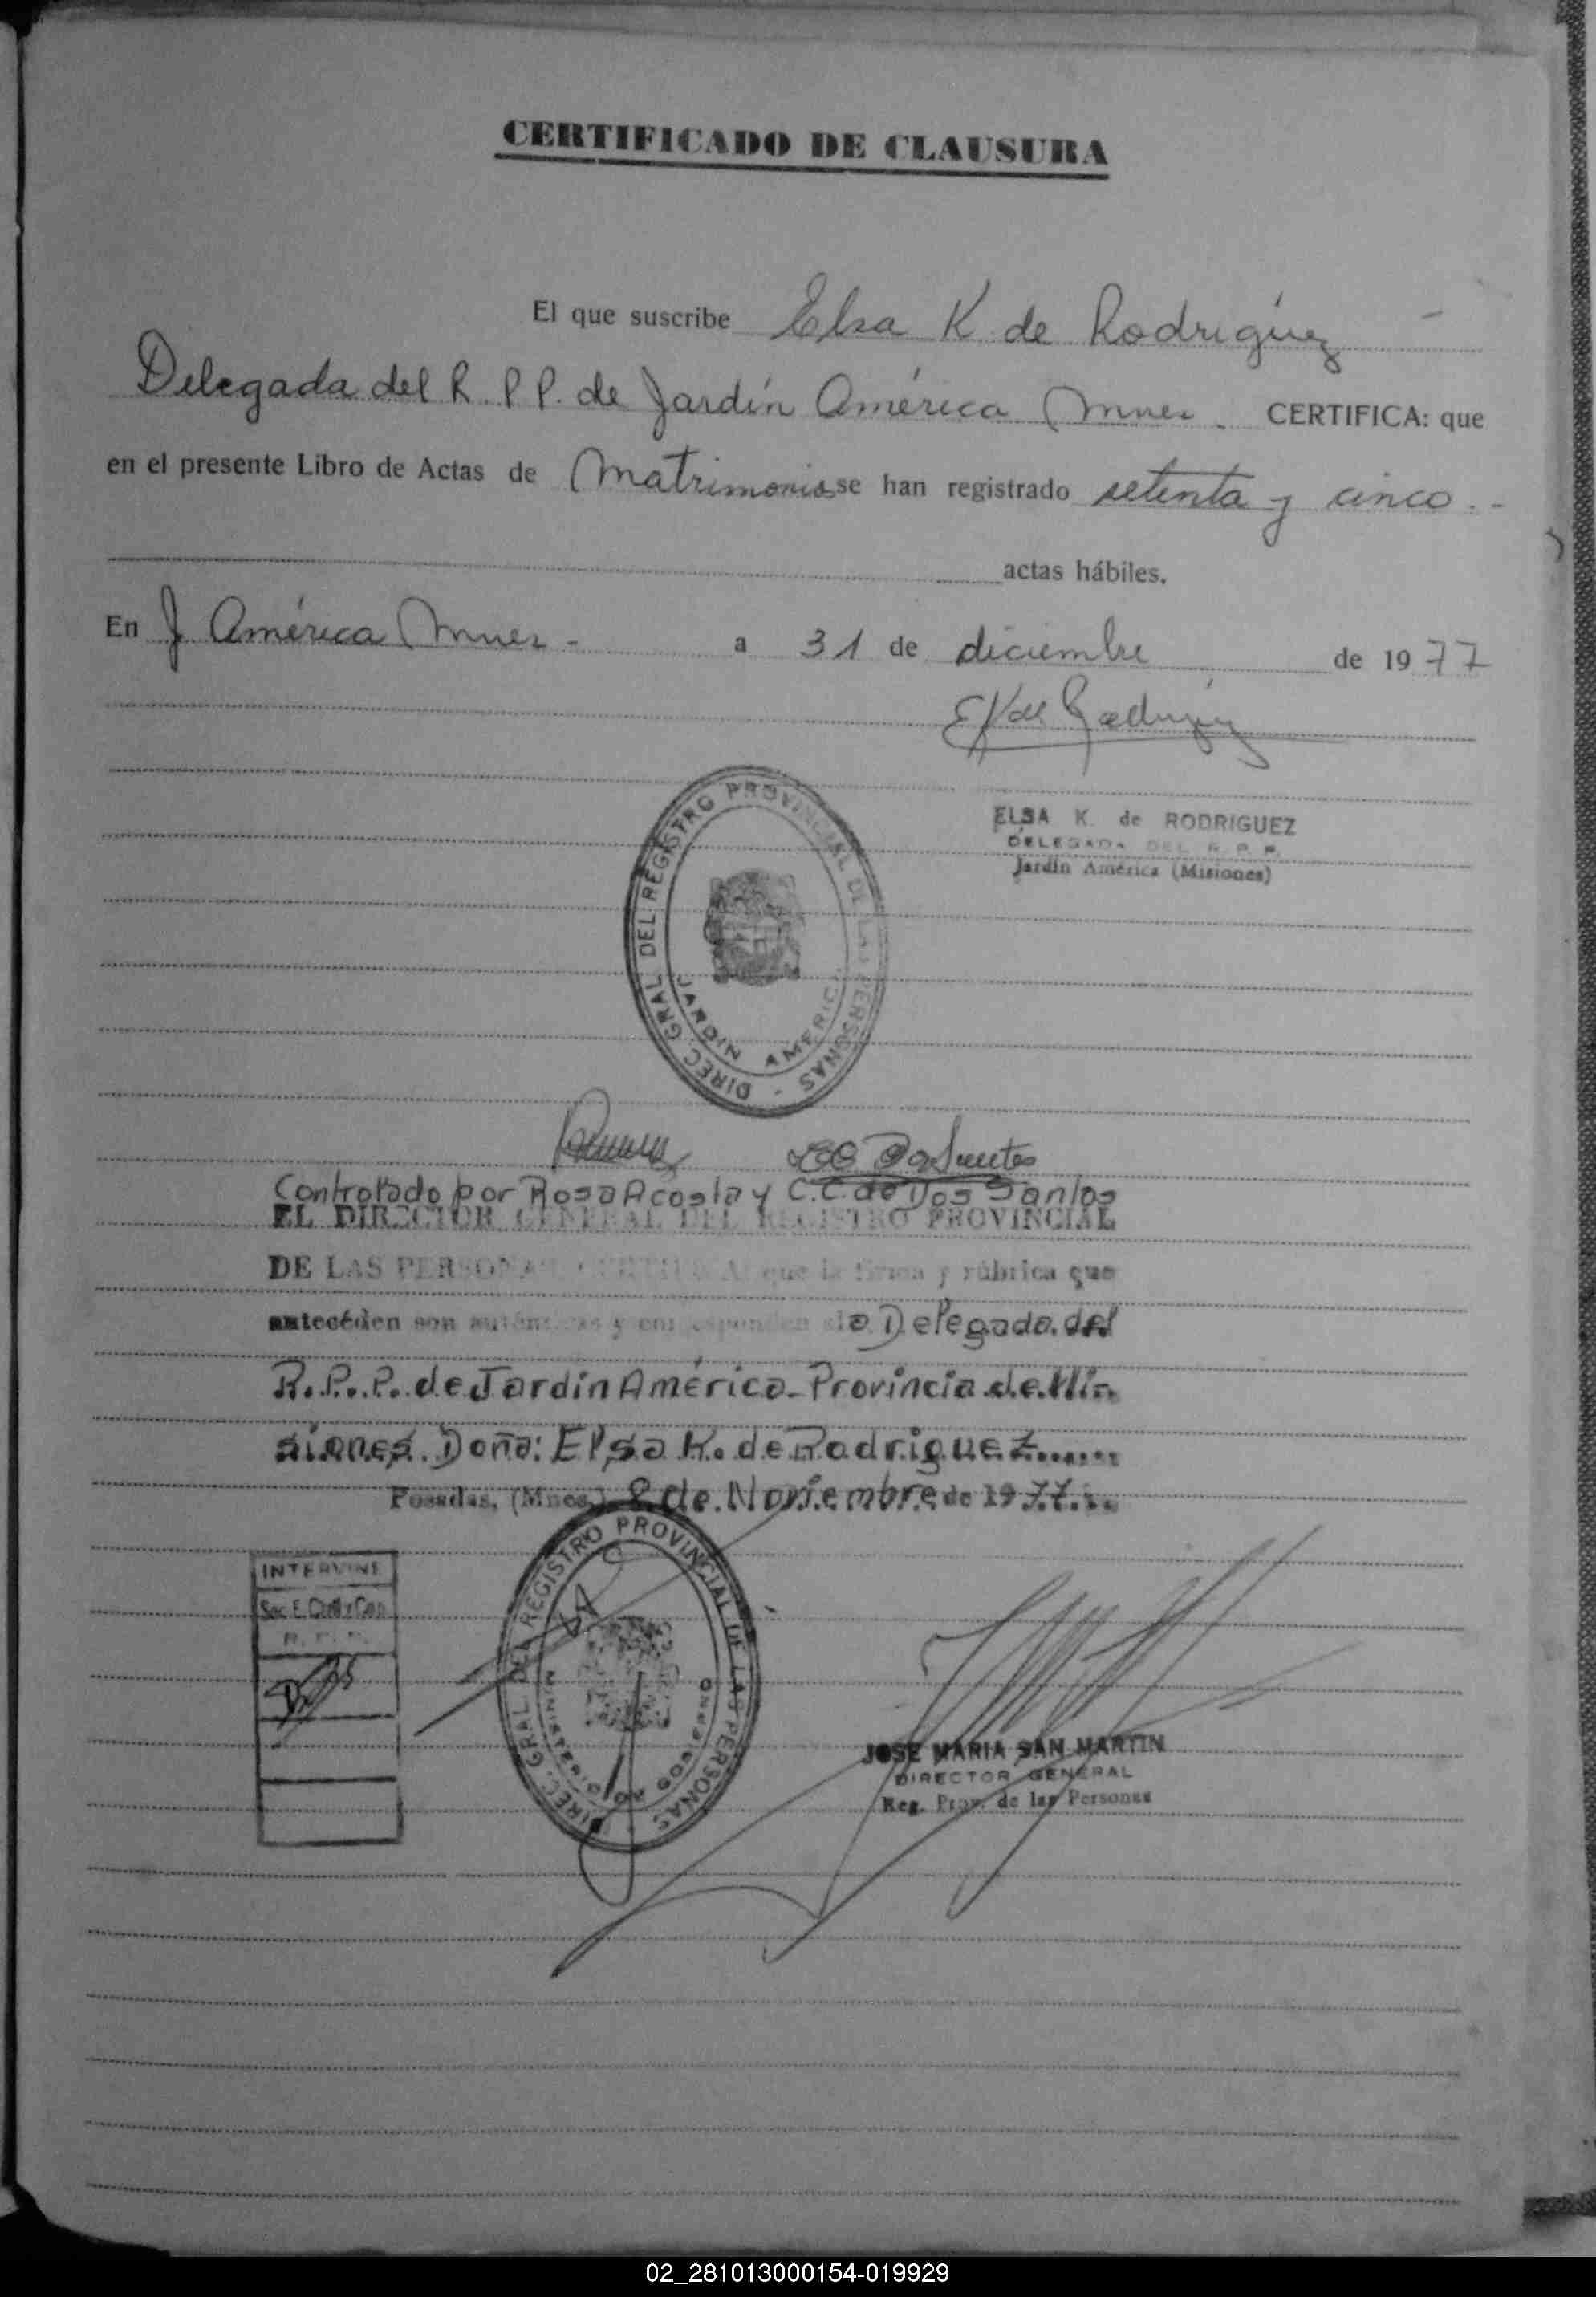 CERTIFICADO DE CLAUSURA
El que suscribe Elsa K. de Rodríguez
Delegada del R. P. P. de Jardín América Mnes. CERTIFICA: que
en el presente Libro de Actas de Matrimonios se han registrado setenta y cinco.-
actas hábiles.
En J. América Mnes - a 31 de diciembre de 1977
E K de Rodríguez
ELSA K. de RODRIGUEZ
DELEGADA DEL R. P. P.
Jardín América (Misiones)
DIREC. GRAL. DEL REGISTRO PROVINCIAL DE LAS PERSONAS -
JARDIN AMERICA
Controlado por Rosa Acosta y C.C. de Dos Santos
EL DIRECTOR GENERAL DEL REGISTRO PROVINCIAL
DE LAS PERSONAS CERTIFICA: que la firma y rúbrica que
antecéden son auténticas y corresponden a la Delegada del
R. P. P. de Jardín América - Provincia de Mi-
siones. Doña: Elsa K. de Rodriguez......
Posadas, (Mnes.) 8 de Noviembre de 1977...
INTERVINE
R. P. P.
DIREC. GRAL. DEL REGISTRO PROVINCIAL DE LAS PERSONAS
MINISTERIO DE GOBIERNO
JOSE MARIA SAN MARTIN
DIRECTOR GENERAL
Reg. Prov. de las Personas
02_281013000154-019929